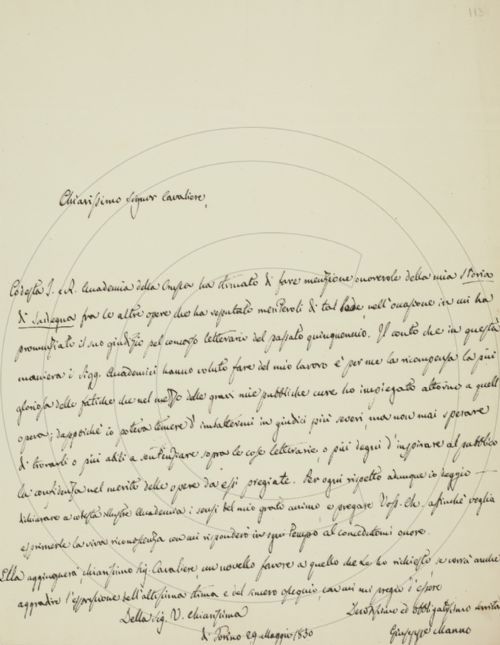 113
Chiarissimo Signor Cavaliere,
Codesta I. e R. Accademia della Crusca ha stimato di fare menzione onorevole della mia Storia
di Sardegna fra le altre opere che ha reputato meritevoli di tal lode nell'occasione in cui ha
pronunziato il suo giudizio pel concorso letterario del passato quinquennio. Il conto che in questa
maniera i Sigg. Accademici hanno voluto fare del mio lavoro è per me la ricompensa la più
gloriosa delle fatiche che nel mezzo delle gravi mie pubbliche cure ho impiegato attorno a quell'
opera; dappoichè io poteva temere d'imbattermi in giudici più severi ma non mai sperare
di trovarli o più abili a sentenziare sopra le cose letterarie, o più degni d'inspirare al pubblico
la confidenza nel merito delle opere da essi pregiate. Per ogni rispetto adunque io deggio
dichiarare a cotesta illustre Accademia i sensi del mio grato animo, e pregare Voss. Ch. affinchè voglia
esprimerle la viva riconoscenza con cui risponderò in ogni tempo al concedutomi onore.
Ella aggiungerà, chiarissimo Sig. Cavaliere un novello favore a quello che Le ho richiesto, se vorrà anche
aggradire l'espressione dell'altissima stima e del sincero ossequio, con cui mi pregio d'essere
Della Sig. V. Chiarissima
di Torino 29 Maggio 1830
Devotissimo ed obbligatissimo servitore
Giuseppe Manno